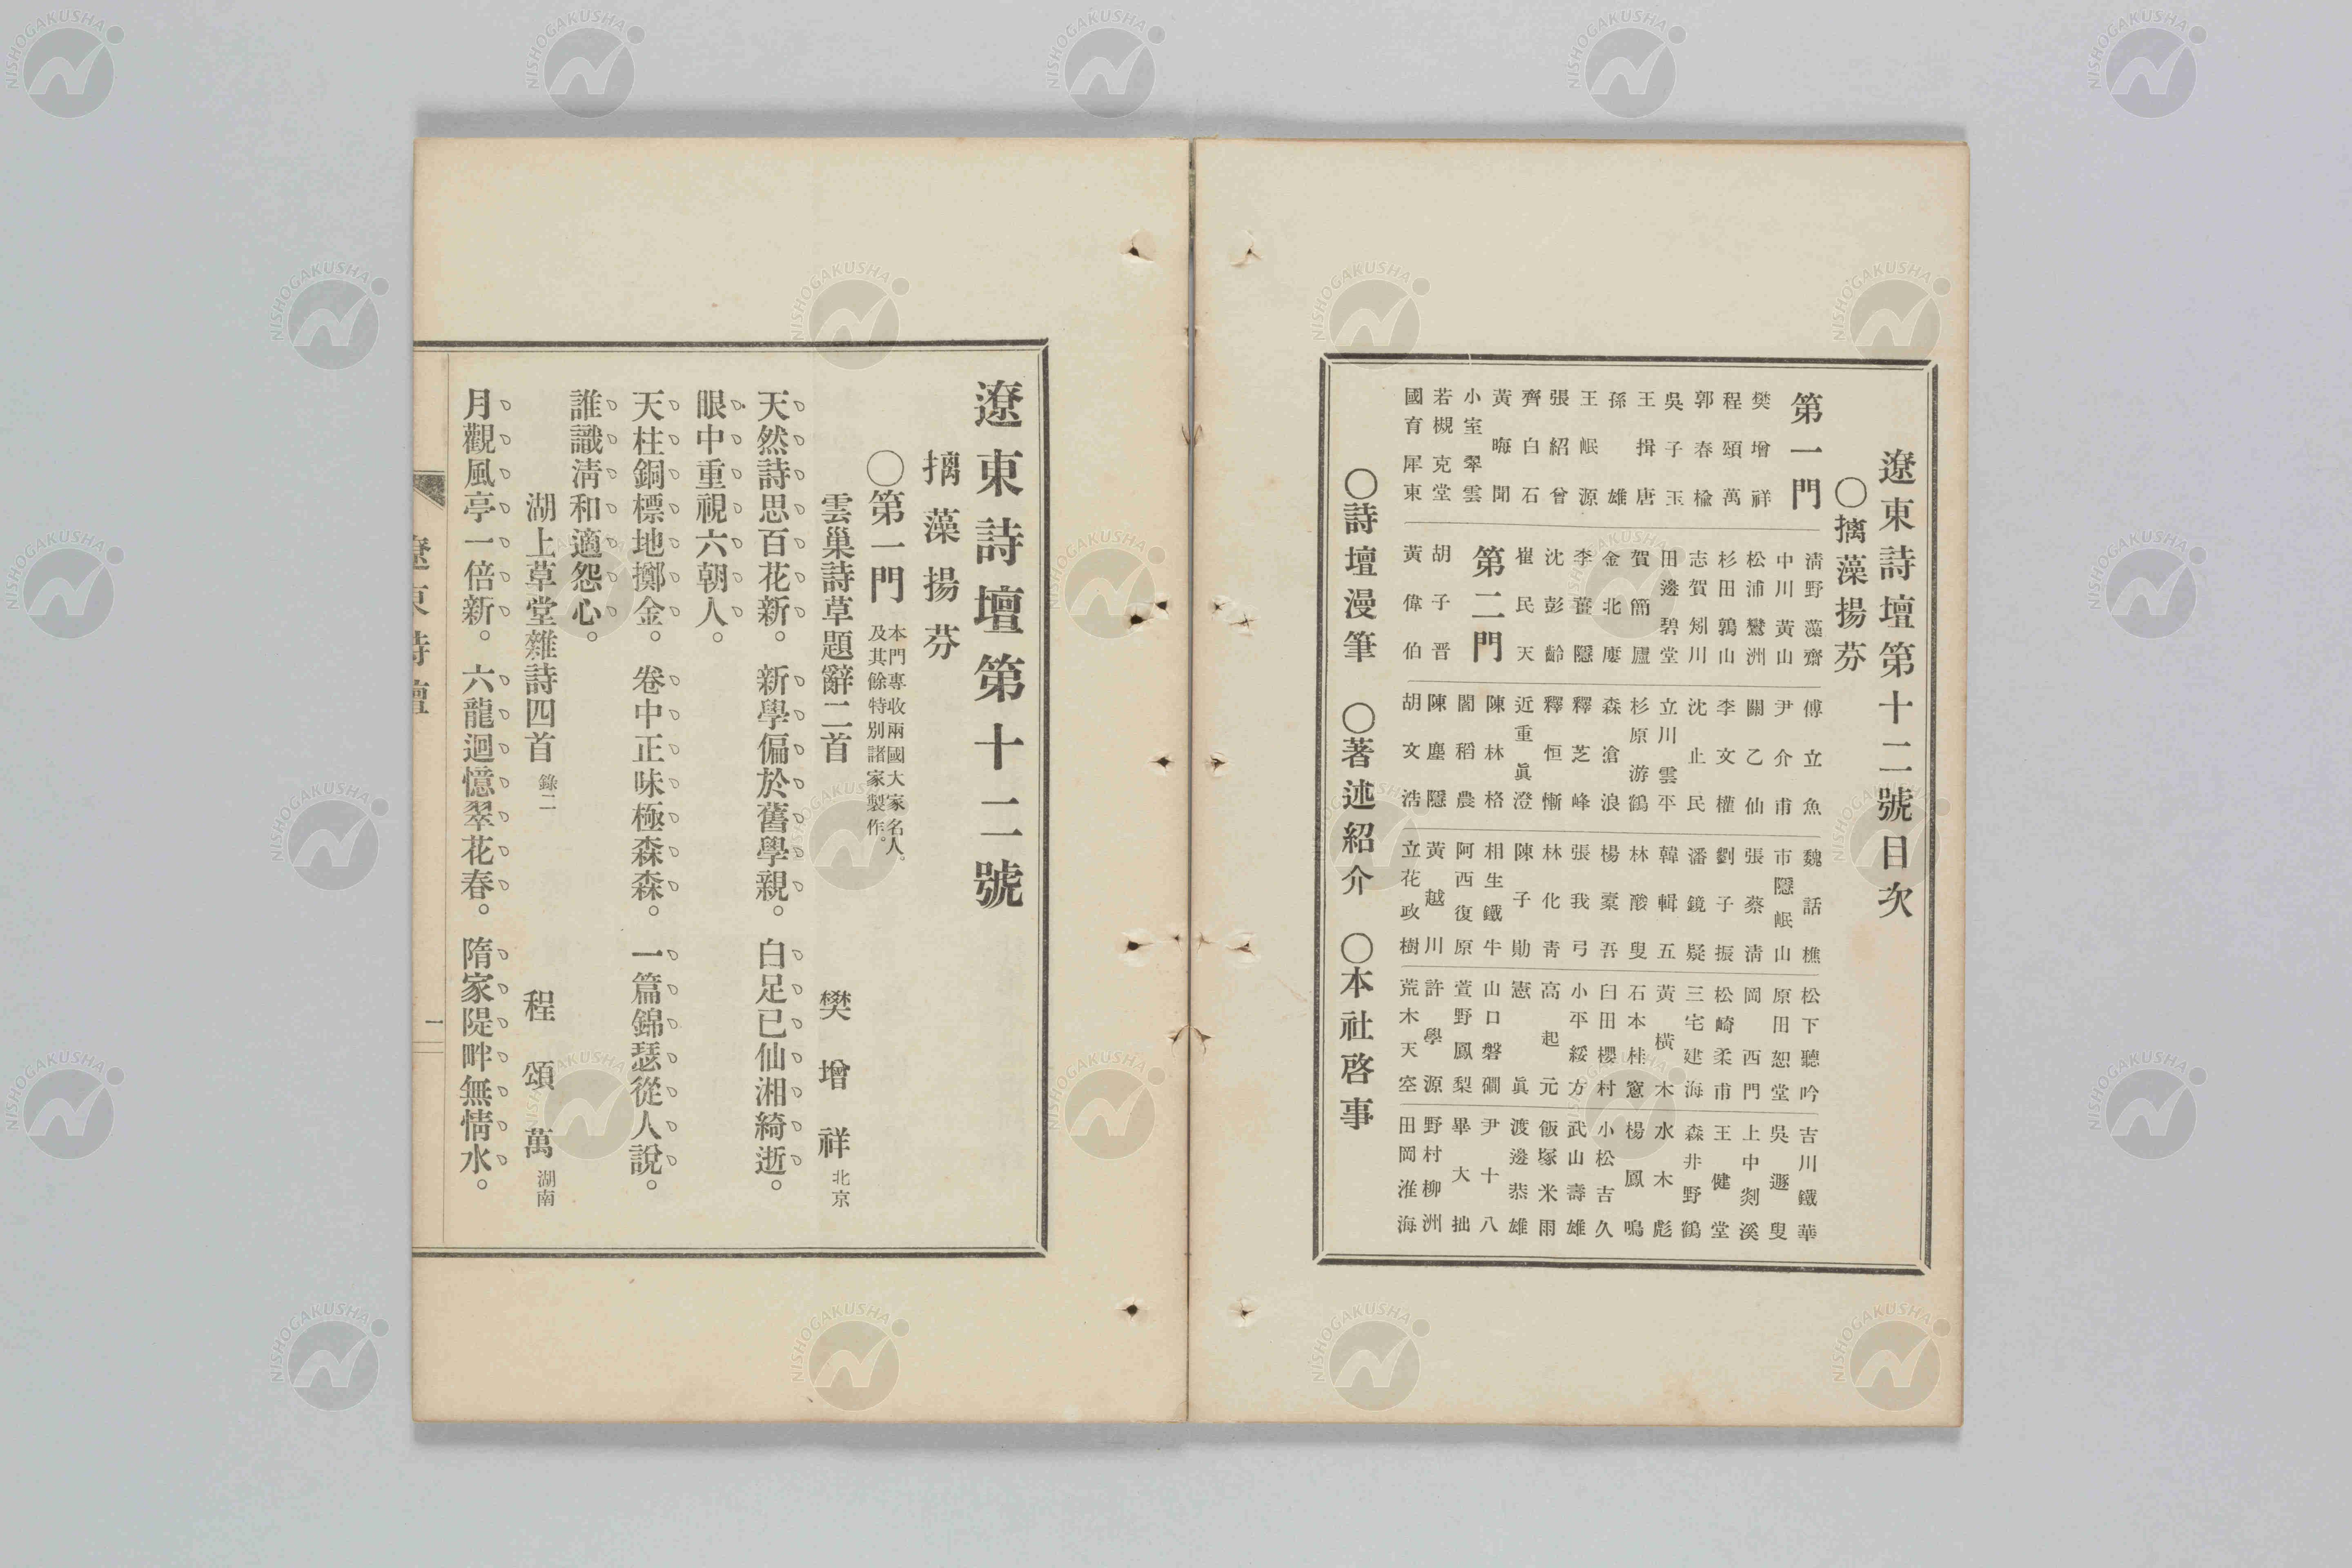 遼東詩壇第十二號目次
○摛藻揚芬
第一門
樊增祥
程頌萬
郭春楡
吳子玉
王揖唐
孫雄
王岷源
張紹曾
齊白石
黃晦聞
小室翠雲
若槻克堂
國育犀東
淸野藻齋
中川黃山
松浦鸞洲
杉田鶉山
志賀矧川
田邊碧堂
賀簡廬
金北廔
李薑隱
沈彭齡
崔民天
第二門
胡子晋
黃偉伯
傅立魚
尹介甫
關乙仙
李文權
沈止民
立川雲平
杉原游鶴
森滄浪
釋芝峰
釋恒慚
近重眞澄
陳林格
閻稻農
陳塵隱
胡文浩
魏話樵
市隱岷山
張蔡淸
劉子振
潘鏡疑
韓輯五
林酸叟
楊槖吾
張我弓
林化靑
陳子勛
相生鐵牛
阿西復原
黃越川
立花政樹
松下聽吟
原田恕堂
岡西門
松崎柔甫
三宅建海
黃橫木
石本桂窻
臼田櫻村
小平綏方
高起元
憲眞
山口磐礀
萱野鳳梨
許學源
荒木天空
吉川鐵華
吳遯叟
上中剡溪
王健堂
森井野鶴
水木彪
楊鳳鳴
小松吉久
武山壽雄
飯塚米雨
渡邊恭雄
尹十八
畢大拙
野村柳洲
田岡淮海
○詩壇漫筆 ○著述紹介 ○本社啓事
遼東詩壇第十二號
摛藻揚芬
○第一門 本門專收兩國大家名人。
及其餘特別諸家製作。
雲巢詩草題辭二首 樊增祥 北京
天然詩思百花新。新學偏於舊學親。白足已仙湘綺逝。
眼中重視六朝人。
天柱銅標地擲金。卷中正味極森森。一篇錦瑟從人說。
誰識淸和適怨心。
湖上草堂雜詩四首 錄二 程頌萬 湖南
月觀風亭一倍新。六龍迴憶翠花春。隋家隄畔無情水。
遼東詩壇
一
NISHOGAKUSHA